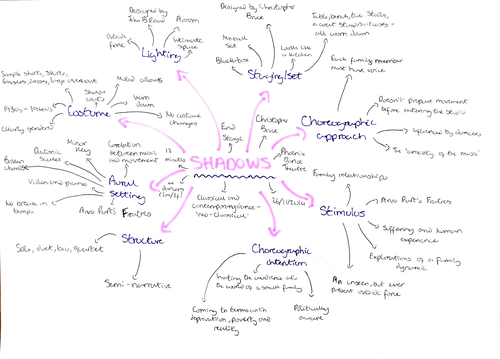 Designed by
John B Read
Prison
Outside
force
Intimate
space
Lighting
Designed by Christopher
Bruce
Minimal
set
Black box
Looks like a
kitchen
Table, bench, two stools,
all worn down
Staging/set
Each family member
must have voice
Doesn't prepare movement
before entering the studio
Influenced by dancers
The "amosity of the music"
Choreographic
approach
Simple shirts, skirts,
trousers, dresses, large overcoat
Shoes +
coats
Muted colours
Worn
down
No costume
changes
Clearly gendered
Costume
End
Stage
Christopher
Bruce
Phoenix
Dance
Theatre
12
minutes
SHADOWS
4
dancers
(2m/2f)
Classical and
contemporary dance -
"neo-classical"
26/11/2014
Minor
Key
Correlation
between music
and movement
Diatonic
Scales
Violin and piano
No break in
Arvo Pärt's Fratres
Aural
setting
Family relationships
Arvo Pärt's Fratres
Suffering and human
experience
Explorations of a family
dynamic
An unseen, but ever
present outside force
Stimulus
Structure
Solo, duet, trio, quartet
Semi-narrative
Choreographic
intention
Inviting the audience into
the world of a small family
Coming to terms with
deprivation, poverty and
reality
Politically
aware